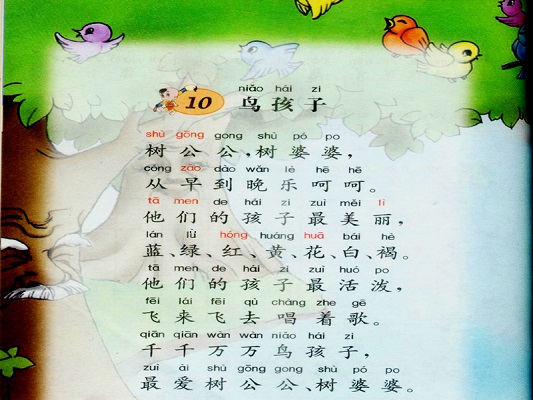 niǎo hái zi
10 鸟孩子
shù gōng gong shù pó po
树公公,树婆婆,
cóng zǎo dào wǎn lè hē hē
从早到晚乐呵呵。
tā men de hái zi zuì měi lì
他们的孩子最美丽,
lán lǜ hóng huáng huā bái hè
蓝、绿、红、黄、花、白、褐。
tā men de hái zi zuì huó po
他们的孩子最活泼,
fēi lái fēi qù chàng zhe gē
飞来飞去唱着歌。
qiān qiān wàn wàn niǎo hái zi
千千万万鸟孩子,
zuì ài shù gōng gong shù pó po
最爱树公公、树婆婆。